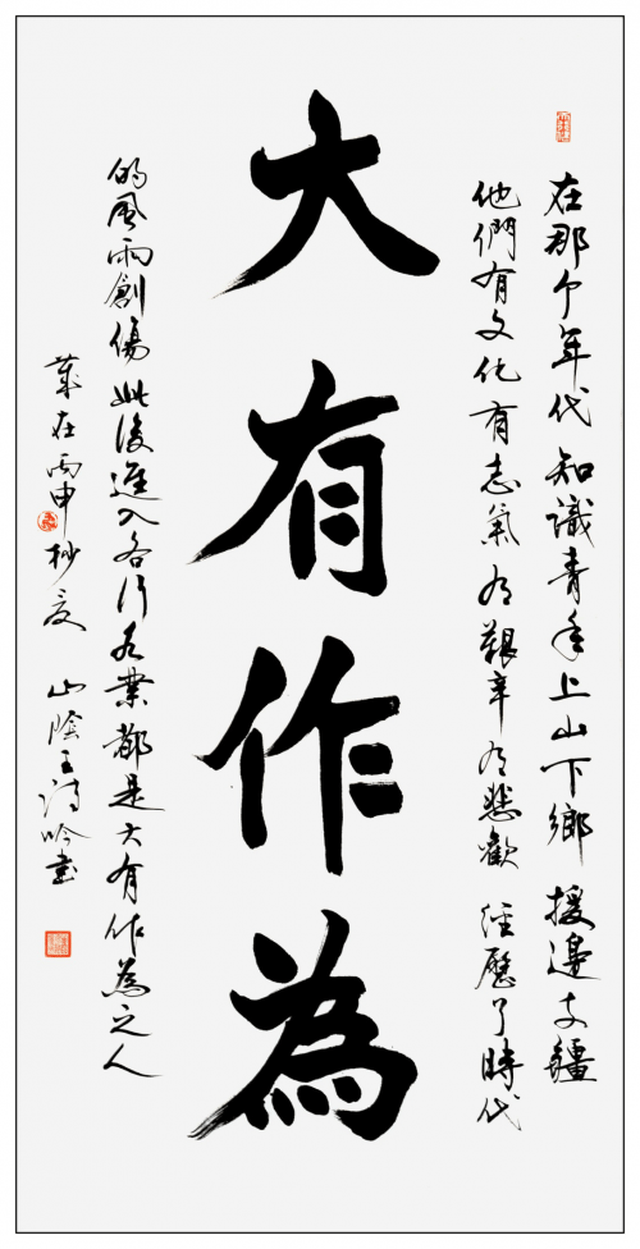 在那个年代知識青年上山下鄉援邊支疆
他們有文化有志氣有艱辛有悲歡經歷了時代
大有作為
的風雨創傷此後進入各行各業都是大有作為之人
歲在丙申杪夏山陰王詩吟書